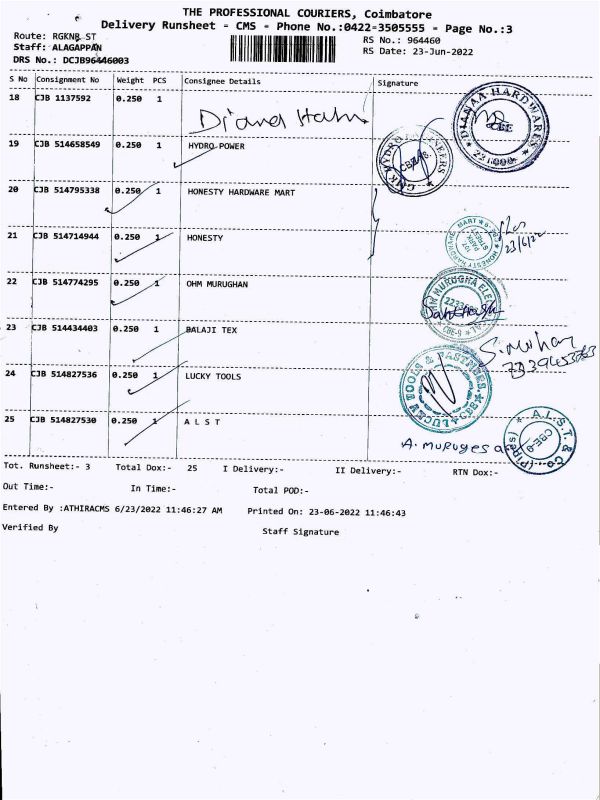 THE PROFESSIONAL COURIERS, Coimbatore
Delivery Runsheet - CMS - Phone No.:0422-3505555 - Page No.:3
Route: RGKNR ST
RS No.: 964460
Staff: ALAGAPPAN
RS Date: 23-Jun-2022
DRS No.: DCJB96446003
S No Consignment No Weight PCS Consignee Details Signature
18 CJB 1137592 0.250 1
DIANAA HARDWARES
CBE
19 CJB 514658549 0.250 1 HYDRO POWER
20 CJB 514795338 0.250 1 HONESTY HARDWARE MART
21 CJB 514714944 0.250 1 HONESTY
HONESTY HARDWARE MART
PARK
STREET
23/6/22
22 CJB 514774295 0.250 1 OHM MURUGHAN
CBE-9
23 CJB 514434403 0.250 1 BALAJI TEX
S. Mohan
24 CJB 514827536 0.250 1 LUCKY TOOLS
LUCKY TOOLS & FASTNERS
25 CJB 514827530 0.250 1 A L S T
A. Muruges
A.L.S.T. & Co.
CBE-9
Tot. Runsheet:- 3 Total Dox:- 25 I Delivery:- II Delivery:- RTN Dox:-
Out Time:- In Time:- Total POD:-
Entered By :ATHIRACMS 6/23/2022 11:46:27 AM Printed On: 23-06-2022 11:46:43
Verified By Staff Signature